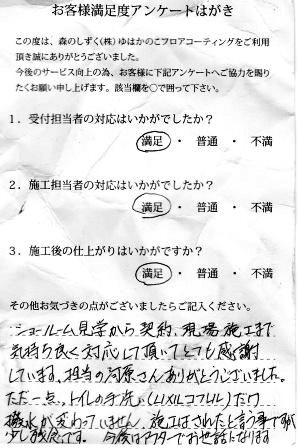 お客様満足度アンケートはがき
この度は、森のしずく(株)ゆはかのこフロアコーティングをご利用
頂き誠にありがとうございました。
今後のサービス向上の為、お客様に下記アンケートへご協力を賜り
たくお願い申し上げます。該当欄を○で囲って下さい。
1．受付担当者の対応はいかがでしたか？
満足 ・ 普通 ・ 不満
2．施工担当者の対応はいかがでしたか？
満足 ・ 普通 ・ 不満
3．施工後の仕上がりはいかがですか？
満足 ・ 普通 ・ 不満
その他お気づきの点がございましたらご記入ください。
ショールーム見学から契約、現場施工まで
気持ち良く対応して頂いてとても感謝
しています。担当の河原さんありがとうございました。
ただ一点、トイレの手洗い(LIXILコフレル)だけ
撥水が変わっていません。施工はされたと言う事で
少し残念です。今後はアフターでお世話になります